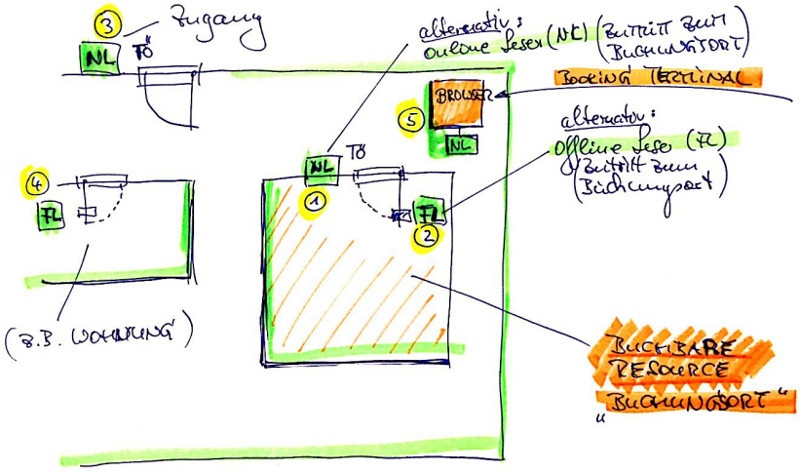 ③ Zugang
NL TÖ
alternativ:
online Leser (NL) (ZUTRITT ZUM
BUCHUNGSORT)
BOOKING TERMINAL
BROWSER
⑤
NL
alternativ:
Offline Leser (FL)
(Zutritt zum
Buchungsort)
NL TÖ
①
④
FL
FL
②
(z.B. WOHNUNG)
BUCHBARE
RESOURCE
"BUCHUNGSORT"